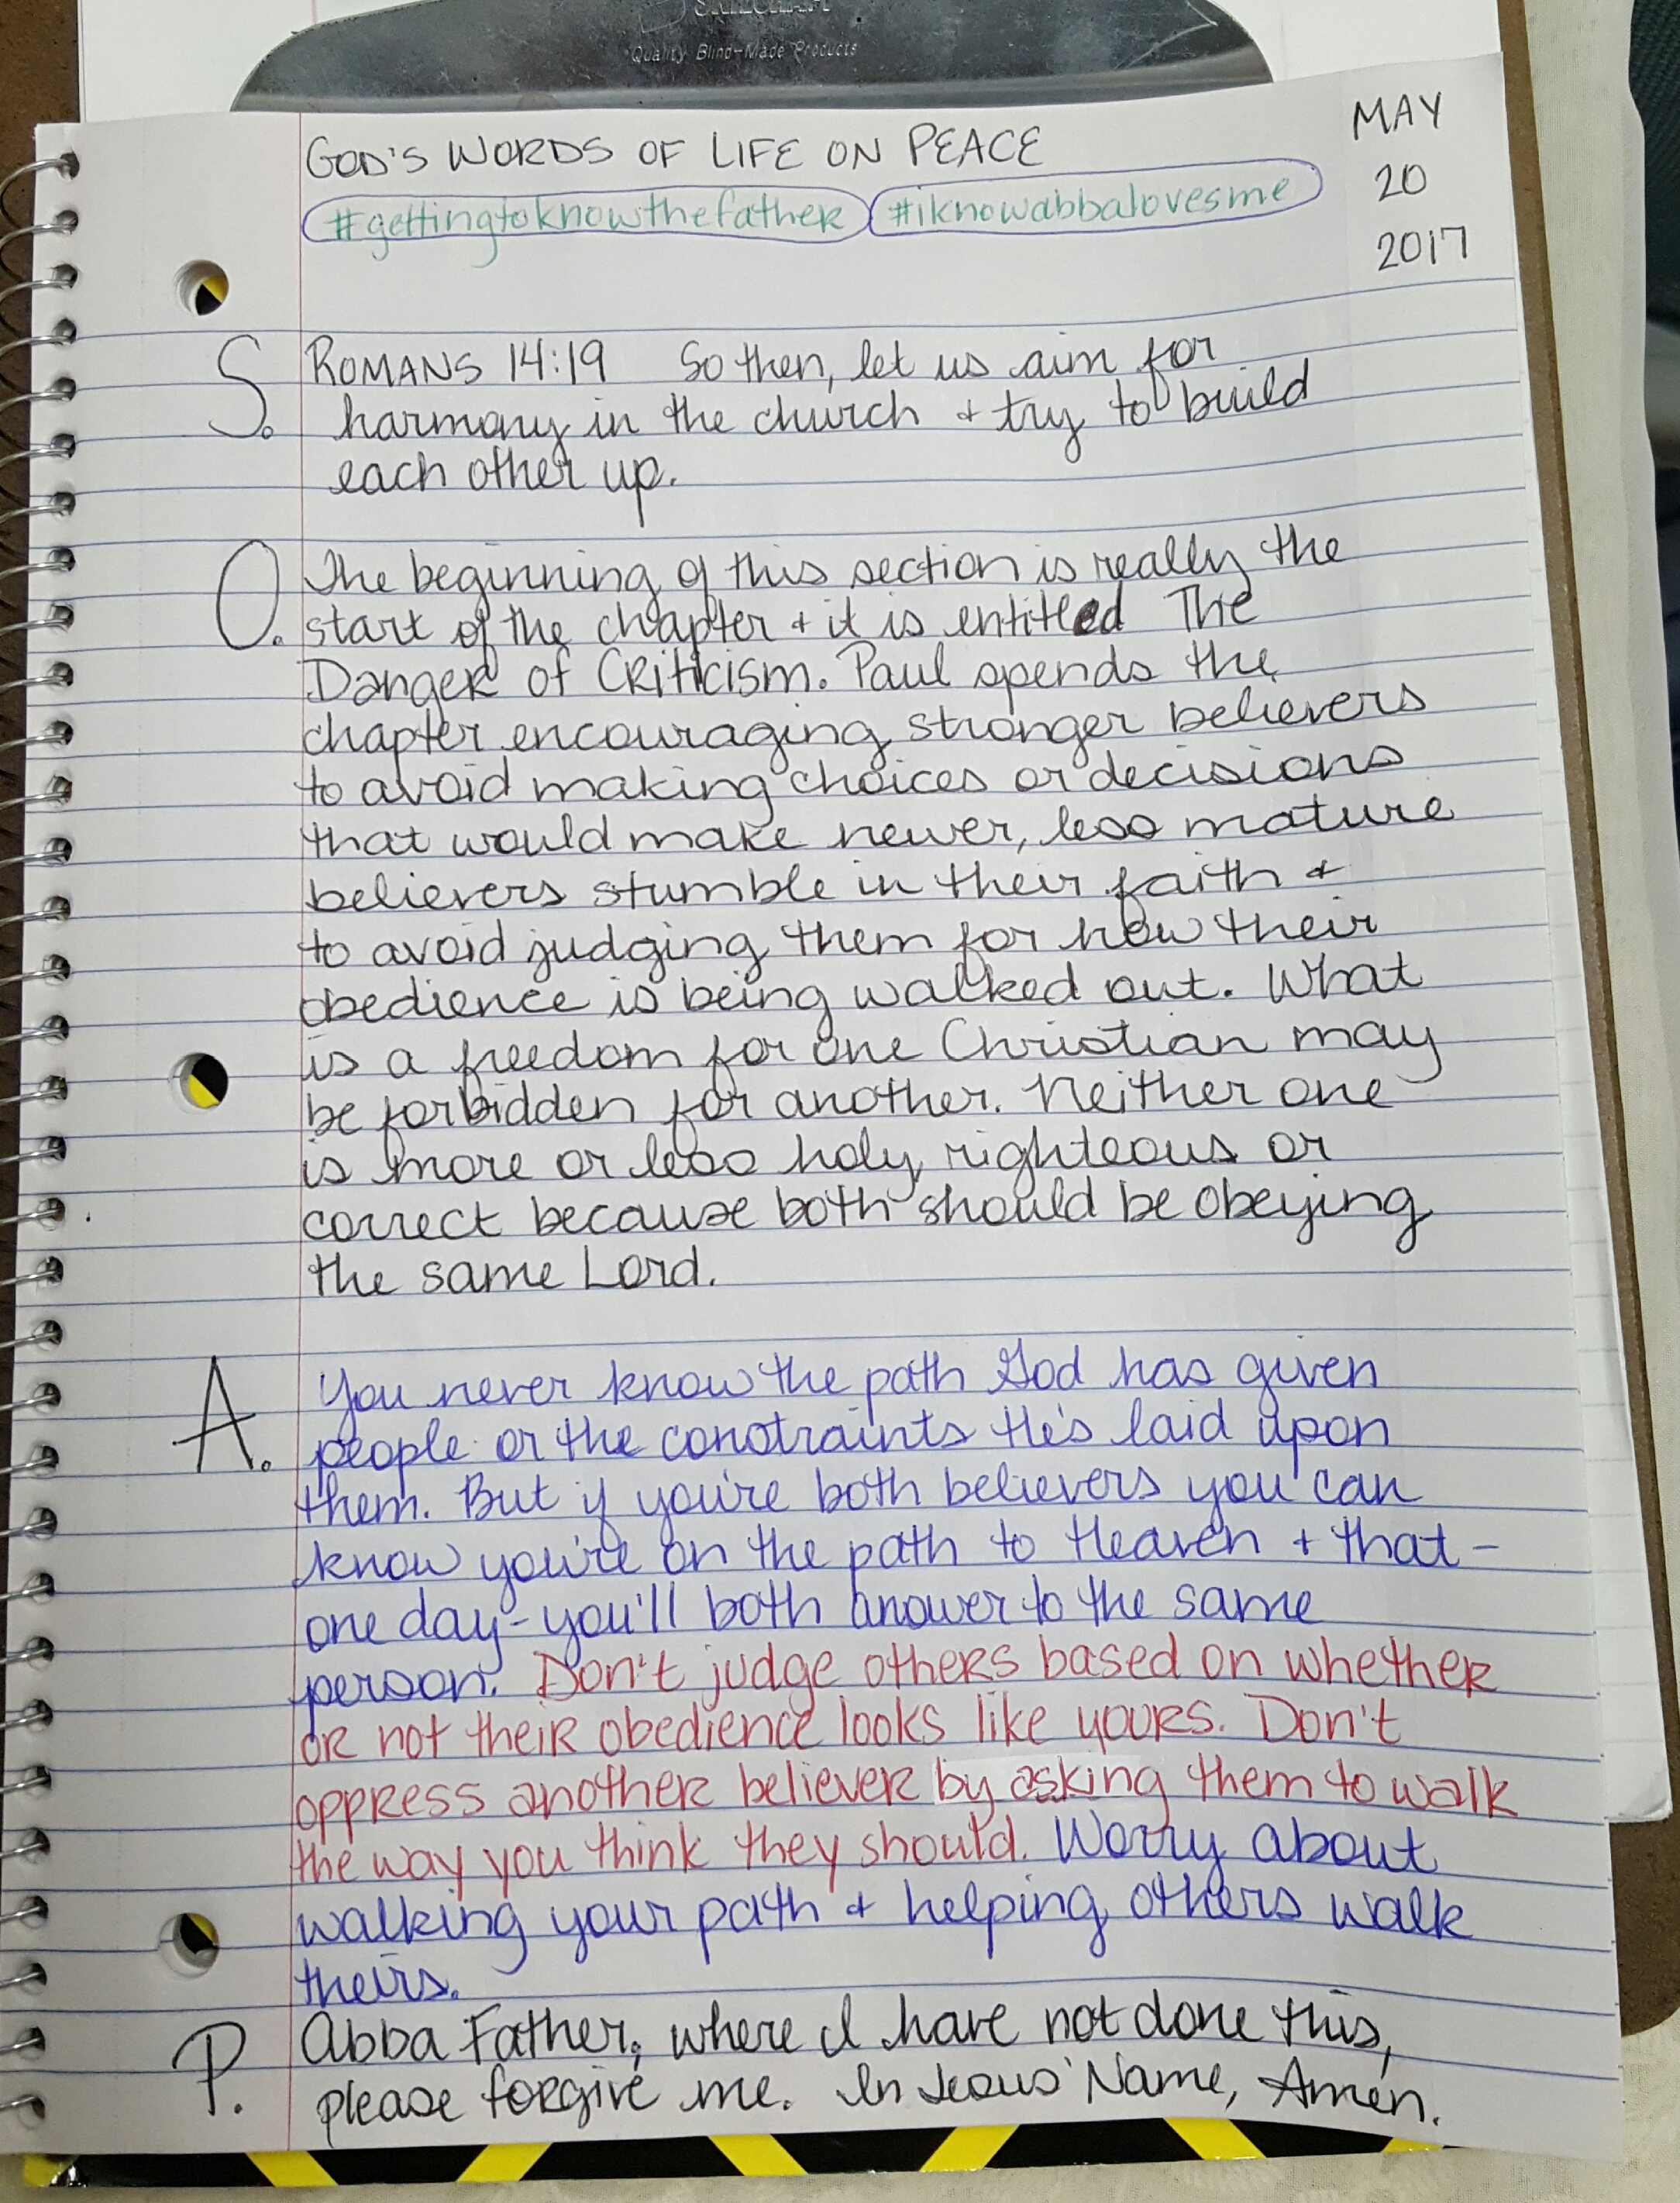 SKILCRAFT
Quality Blind-Made Products
GOD'S WORDS OF LIFE ON PEACE
#gettingtoknowthefather #iknowabbalovesme
MAY
20
2017
S. ROMANS 14:19 So then, let us aim for
harmony in the church + try to build
each other up.
O. The beginning of this section is really the
start of the chapter + it is entitled The
Danger of Criticism. Paul spends the
chapter encouraging stronger believers
to avoid making choices or decisions
that would make newer, less mature
believers stumble in their faith +
to avoid judging them for how their
obedience is being walked out. What
is a freedom for one Christian may
be forbidden for another. Neither one
is more or less holy, righteous or
correct because both should be obeying
the same Lord.
A. You never know the path God has given
people or the constraints He's laid upon
them. But if you're both believers you can
know you're on the path to Heaven + that -
one day - you'll both answer to the same
person. Don't judge others based on whether
or not their obedience looks like yours. Don't
oppress another believer by asking them to walk
the way you think they should. Worry about
walking your path + helping others walk
theirs.
P. Abba Father, where I have not done this,
please forgive me. In Jesus' Name, Amen.